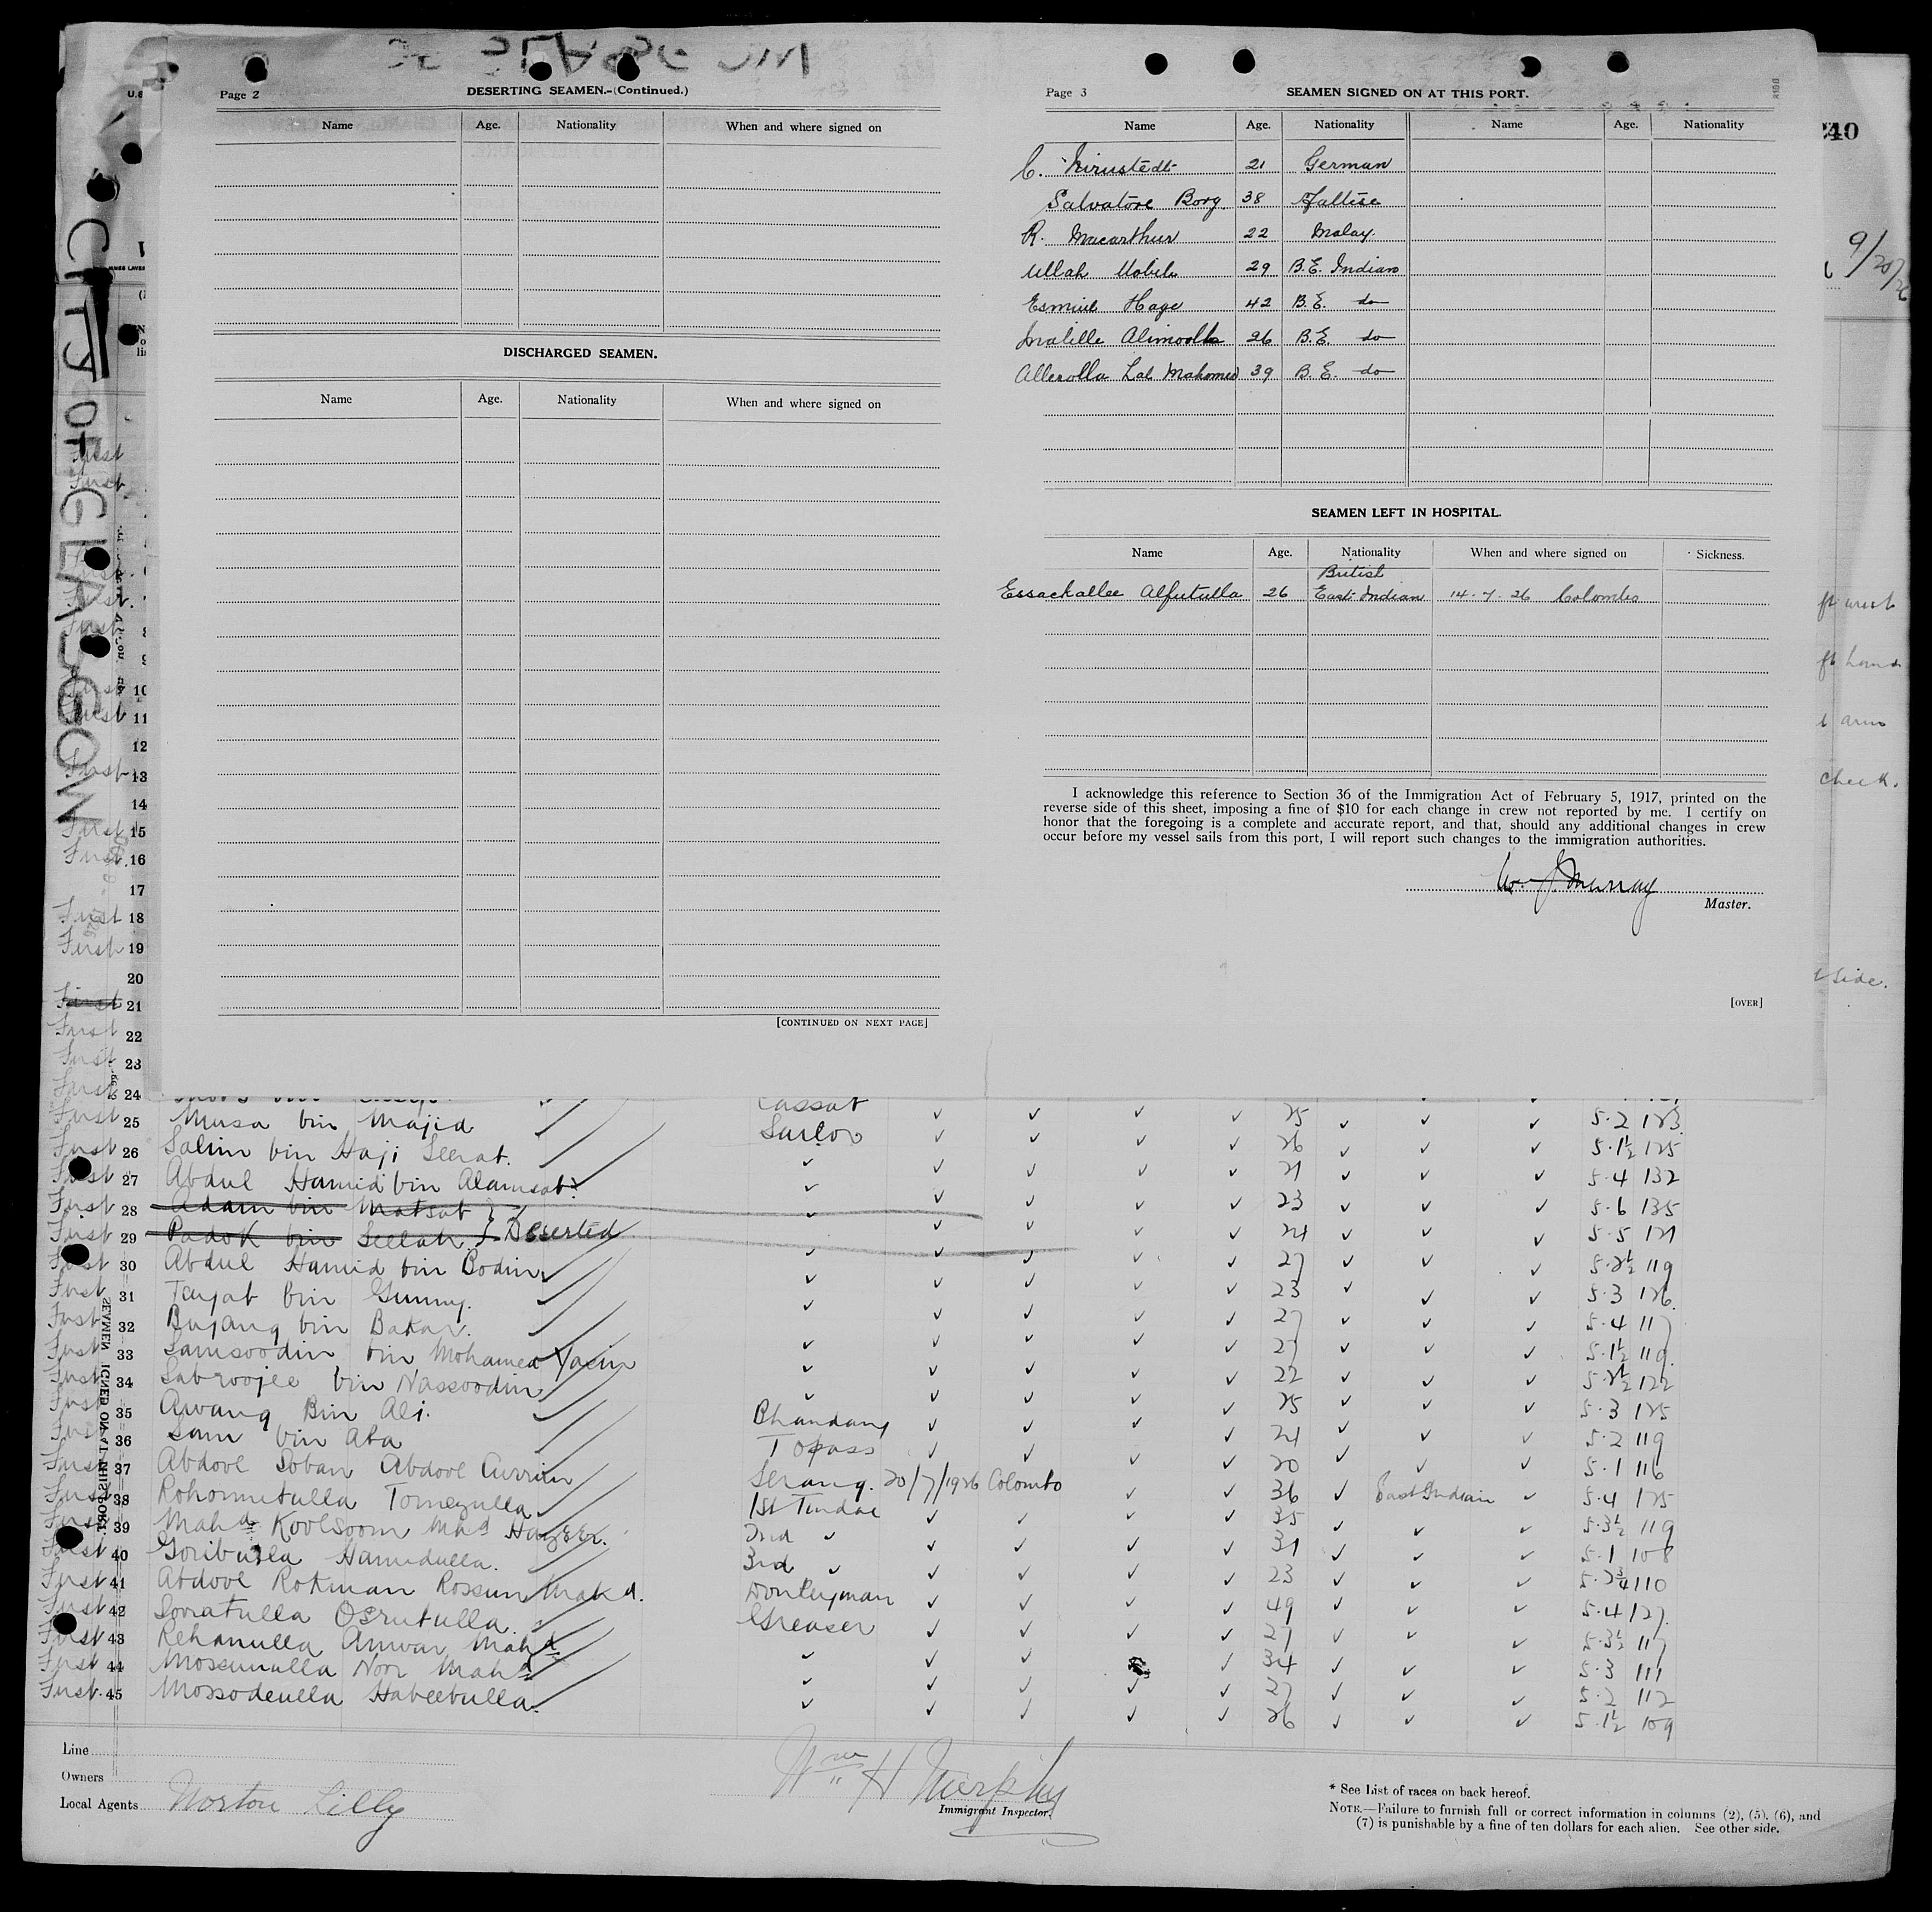 Page 2
DESERTING SEAMEN.-(Continued.)
Name Age. Nationality When and where signed on
DISCHARGED SEAMEN.
Name Age. Nationality When and where signed on
[CONTINUED ON NEXT PAGE]
Page 3
SEAMEN SIGNED ON AT THIS PORT.
Name Age. Nationality Name Age. Nationality
C. 21 German
Salvatore Borg 38
R. Macarthur 22 Malay.
Ullah 29 B.E. Indian
Hage 42 B.E. do
26 B.E. do
Lal Mahomed 39 B.E. do
SEAMEN LEFT IN HOSPITAL.
Name Age. Nationality When and where signed on Sickness.
British
Essackallee Alfutulla 26 East Indian 14.7.26 Colombo
I acknowledge this reference to Section 36 of the Immigration Act of February 5, 1917, printed on the
reverse side of this sheet, imposing a fine of $10 for each change in crew not reported by me. I certify on
honor that the foregoing is a complete and accurate report, and that, should any additional changes in crew
occur before my vessel sails from this port, I will report such changes to the immigration authorities.
W. J. Murray
Master.
[OVER]
CITY OF GLASGOW
240
9/20/26
hand
arm
check.
side.
10
11
12
First 13
14
First 15
First 16
17
First 18
First 19
20
First 21
First 22
First 23
First 24
Cassab
First 25 Musa bin Majid Sailor 25 5.2 123
First 26 Salim bin Haji Seerat. 26 5.1½ 125
First 27 Abdul Hamid bin Alamsat 21 5.4 132
First 28 Adam bin Matsat 23 5.6 135
First 29 Padok bin Seelah } Deserted 24 5.5 121
First 30 Abdul Hamid bin Bodin 27 5.2½ 119
First 31 Tayab bin Gunny. 23 5.3 126
First 32 Bujang bin Bakar. 27 5.4 117
First 33 Samsoodin bin Mohamed Yasin 27 5.1½ 119
First 34 Sabroojee bin Nassoodin 22 5.2½ 122
First 35 Awang Bin Ali. Bhandary 25 5.3 125
First 36 Sam bin Ata Topass 21 5.2 119
First 37 Abdool Soban Abdool Currim Serang. 20/7/1926 Colombo 20 5.1 116
First 38 Rohomutulla Tomezulla 1st Tindal 36 East Indian 5.4 125
First 39 Mahd Koolsoom Mahd Hazeer. 2nd 35 5.3½ 119
First 40 Goribulla Hamidulla. 3rd 31 5.1 108
First 41 Abdool Rokman Rossun Makd. Donkeyman 23 5.2¾ 110
First 42 Sovratulla Osrutulla. Greaser 49 5.4 127
First 43 Rehanulla Anwar Mahd 27 5.3½ 117
First 44 Mossunulla Noor Mahd 34 5.3 111
First 45 Mossodeulla Habeebulla. 27 5.2 112
26 5.1½ 109
Line
Owners
Local Agents Norton Lilly
Wm H Murphy
Immigrant Inspector.
* See List of races on back hereof.
NOTE.—Failure to furnish full or correct information in columns (2), (5), (6), and
(7) is punishable by a fine of ten dollars for each alien. See other side.